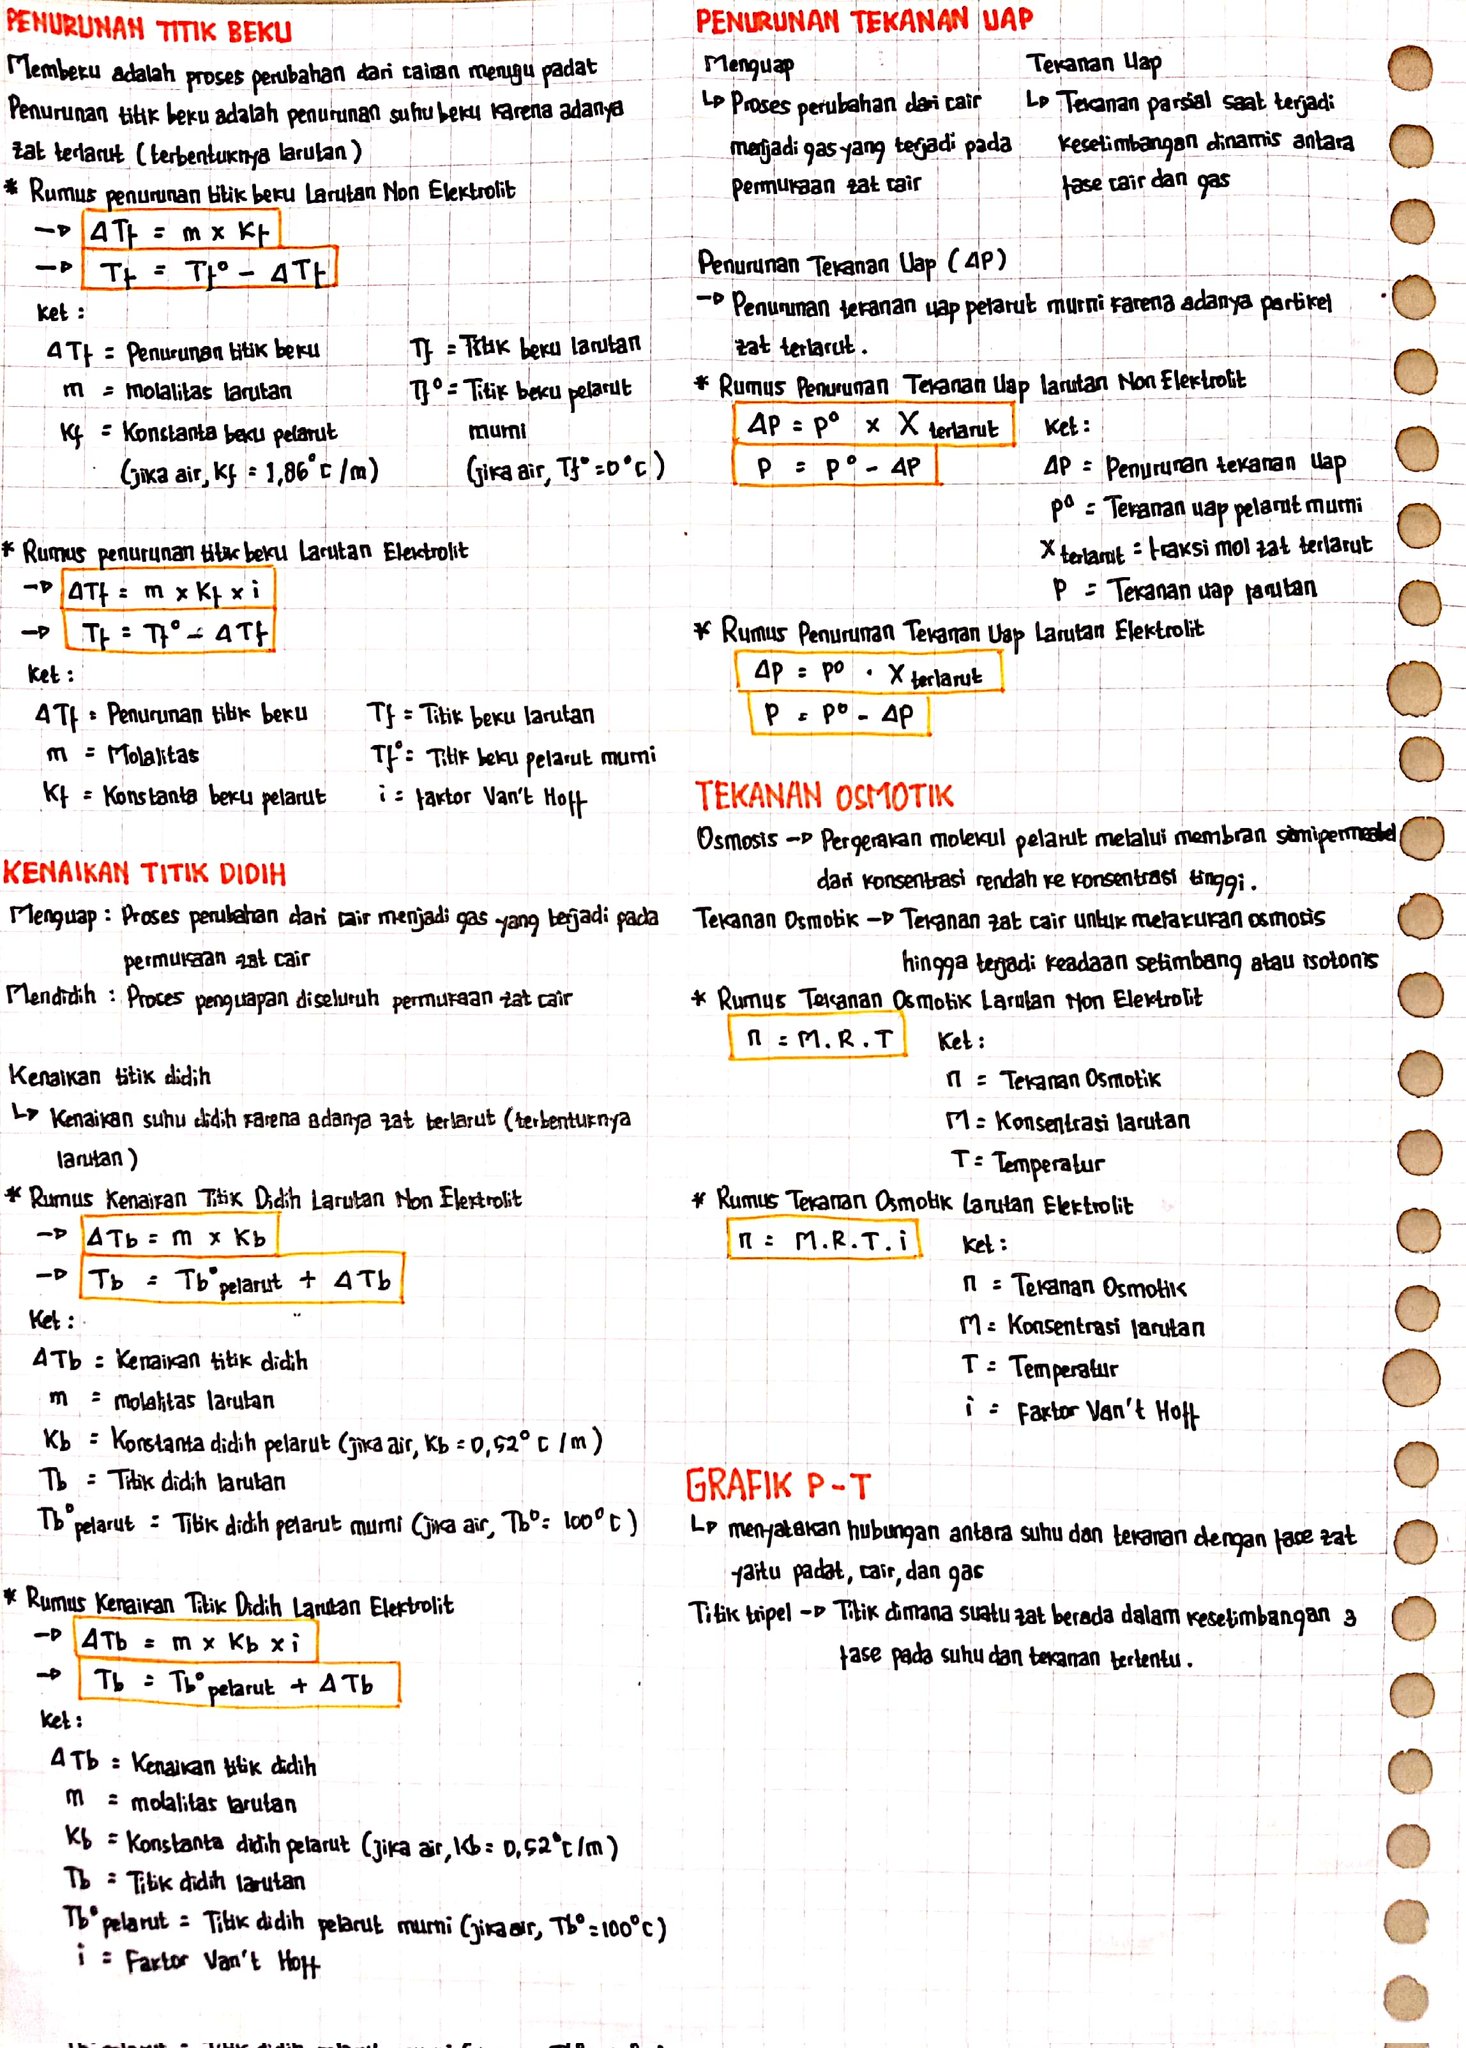 PENURUNAN TITIK BEKU
Membeku adalah proses perubahan dari cairan menuju padat
Penurunan titik beku adalah penurunan suhu beku karena adanya
zat terlarut (terbentuknya larutan)
* Rumus penurunan titik beku Larutan Non Elektrolit
→ ΔTf = m x Kf
→ Tf = Tf° - ΔTf
ket :
ΔTf = Penurunan titik beku
m = molalitas larutan
Kf = Konstanta beku pelarut
(jika air, Kf = 1,86°C/m)
Tf = Titik beku larutan
Tf° = Titik beku pelarut
murni
(jika air, Tf° = 0°C)
* Rumus penurunan titik beku Larutan Elektrolit
→ ΔTf = m x Kf x i
→ Tf = Tf° - ΔTf
ket :
ΔTf = Penurunan titik beku
m = Molalitas
Kf = Konstanta beku pelarut
Tf = Titik beku larutan
Tf° = Titik beku pelarut murni
i = faktor Van't Hoff
KENAIKAN TITIK DIDIH
Menguap : Proses perubahan dari cair menjadi gas yang terjadi pada
permukaan zat cair
Mendidih : Proses penguapan diseluruh permukaan zat cair
Kenaikan titik didih
↳ Kenaikan suhu didih karena adanya zat terlarut (terbentuknya
larutan)
* Rumus Kenaikan Titik Didih Larutan Non Elektrolit
→ ΔTb = m x Kb
→ Tb = Tb° pelarut + ΔTb
Ket :
ΔTb = Kenaikan titik didih
m = molalitas larutan
Kb = Konstanta didih pelarut (jika air, Kb = 0,52°C/m)
Tb = Titik didih larutan
Tb° pelarut = Titik didih pelarut murni (jika air, Tb° = 100°C)
* Rumus Kenaikan Titik Didih Larutan Elektrolit
→ ΔTb = m x Kb x i
→ Tb = Tb° pelarut + ΔTb
Ket :
ΔTb = Kenaikan titik didih
m = molalitas larutan
Kb = Konstanta didih pelarut (jika air, Kb = 0,52°C/m)
Tb = Titik didih larutan
Tb° pelarut = Titik didih pelarut murni (jika air, Tb° = 100°C)
i = Faktor Van't Hoff
PENURUNAN TEKANAN UAP
Menguap
↳ Proses perubahan dari cair
menjadi gas yang terjadi pada
permukaan zat cair
Tekanan Uap
↳ Tekanan parsial saat terjadi
kesetimbangan dinamis antara
fase cair dan gas
Penurunan Tekanan Uap (ΔP)
→ Penurunan tekanan uap pelarut murni karena adanya partikel
zat terlarut.
* Rumus Penurunan Tekanan Uap larutan Non Elektrolit
ΔP = P° x X terlarut
P = P° - ΔP
Ket :
ΔP = Penurunan tekanan Uap
P° = Tekanan uap pelarut murni
X terlarut = fraksi mol zat terlarut
P = Tekanan uap larutan
* Rumus Penurunan Tekanan Uap Larutan Elektrolit
ΔP = P° . X terlarut
P = P° - ΔP
TEKANAN OSMOTIK
Osmosis → Pergerakan molekul pelarut melalui membran semipermeabel
dari konsentrasi rendah ke konsentrasi tinggi.
Tekanan Osmotik → Tekanan zat cair untuk melakukan osmosis
hingga terjadi keadaan setimbang atau isotonis
* Rumus Tekanan Osmotik Larutan Non Elektrolit
π = M.R.T
Ket :
π = Tekanan Osmotik
M = Konsentrasi larutan
T = Temperatur
* Rumus Tekanan Osmotik Larutan Elektrolit
π = M.R.T.i
Ket :
π = Tekanan Osmotik
M = Konsentrasi larutan
T = Temperatur
i = Faktor Van't Hoff
GRAFIK P-T
↳ menyatakan hubungan antara suhu dan tekanan dengan fase zat
yaitu padat, cair, dan gas
Titik tripel → Titik dimana suatu zat berada dalam kesetimbangan 3
fase pada suhu dan tekanan tertentu.